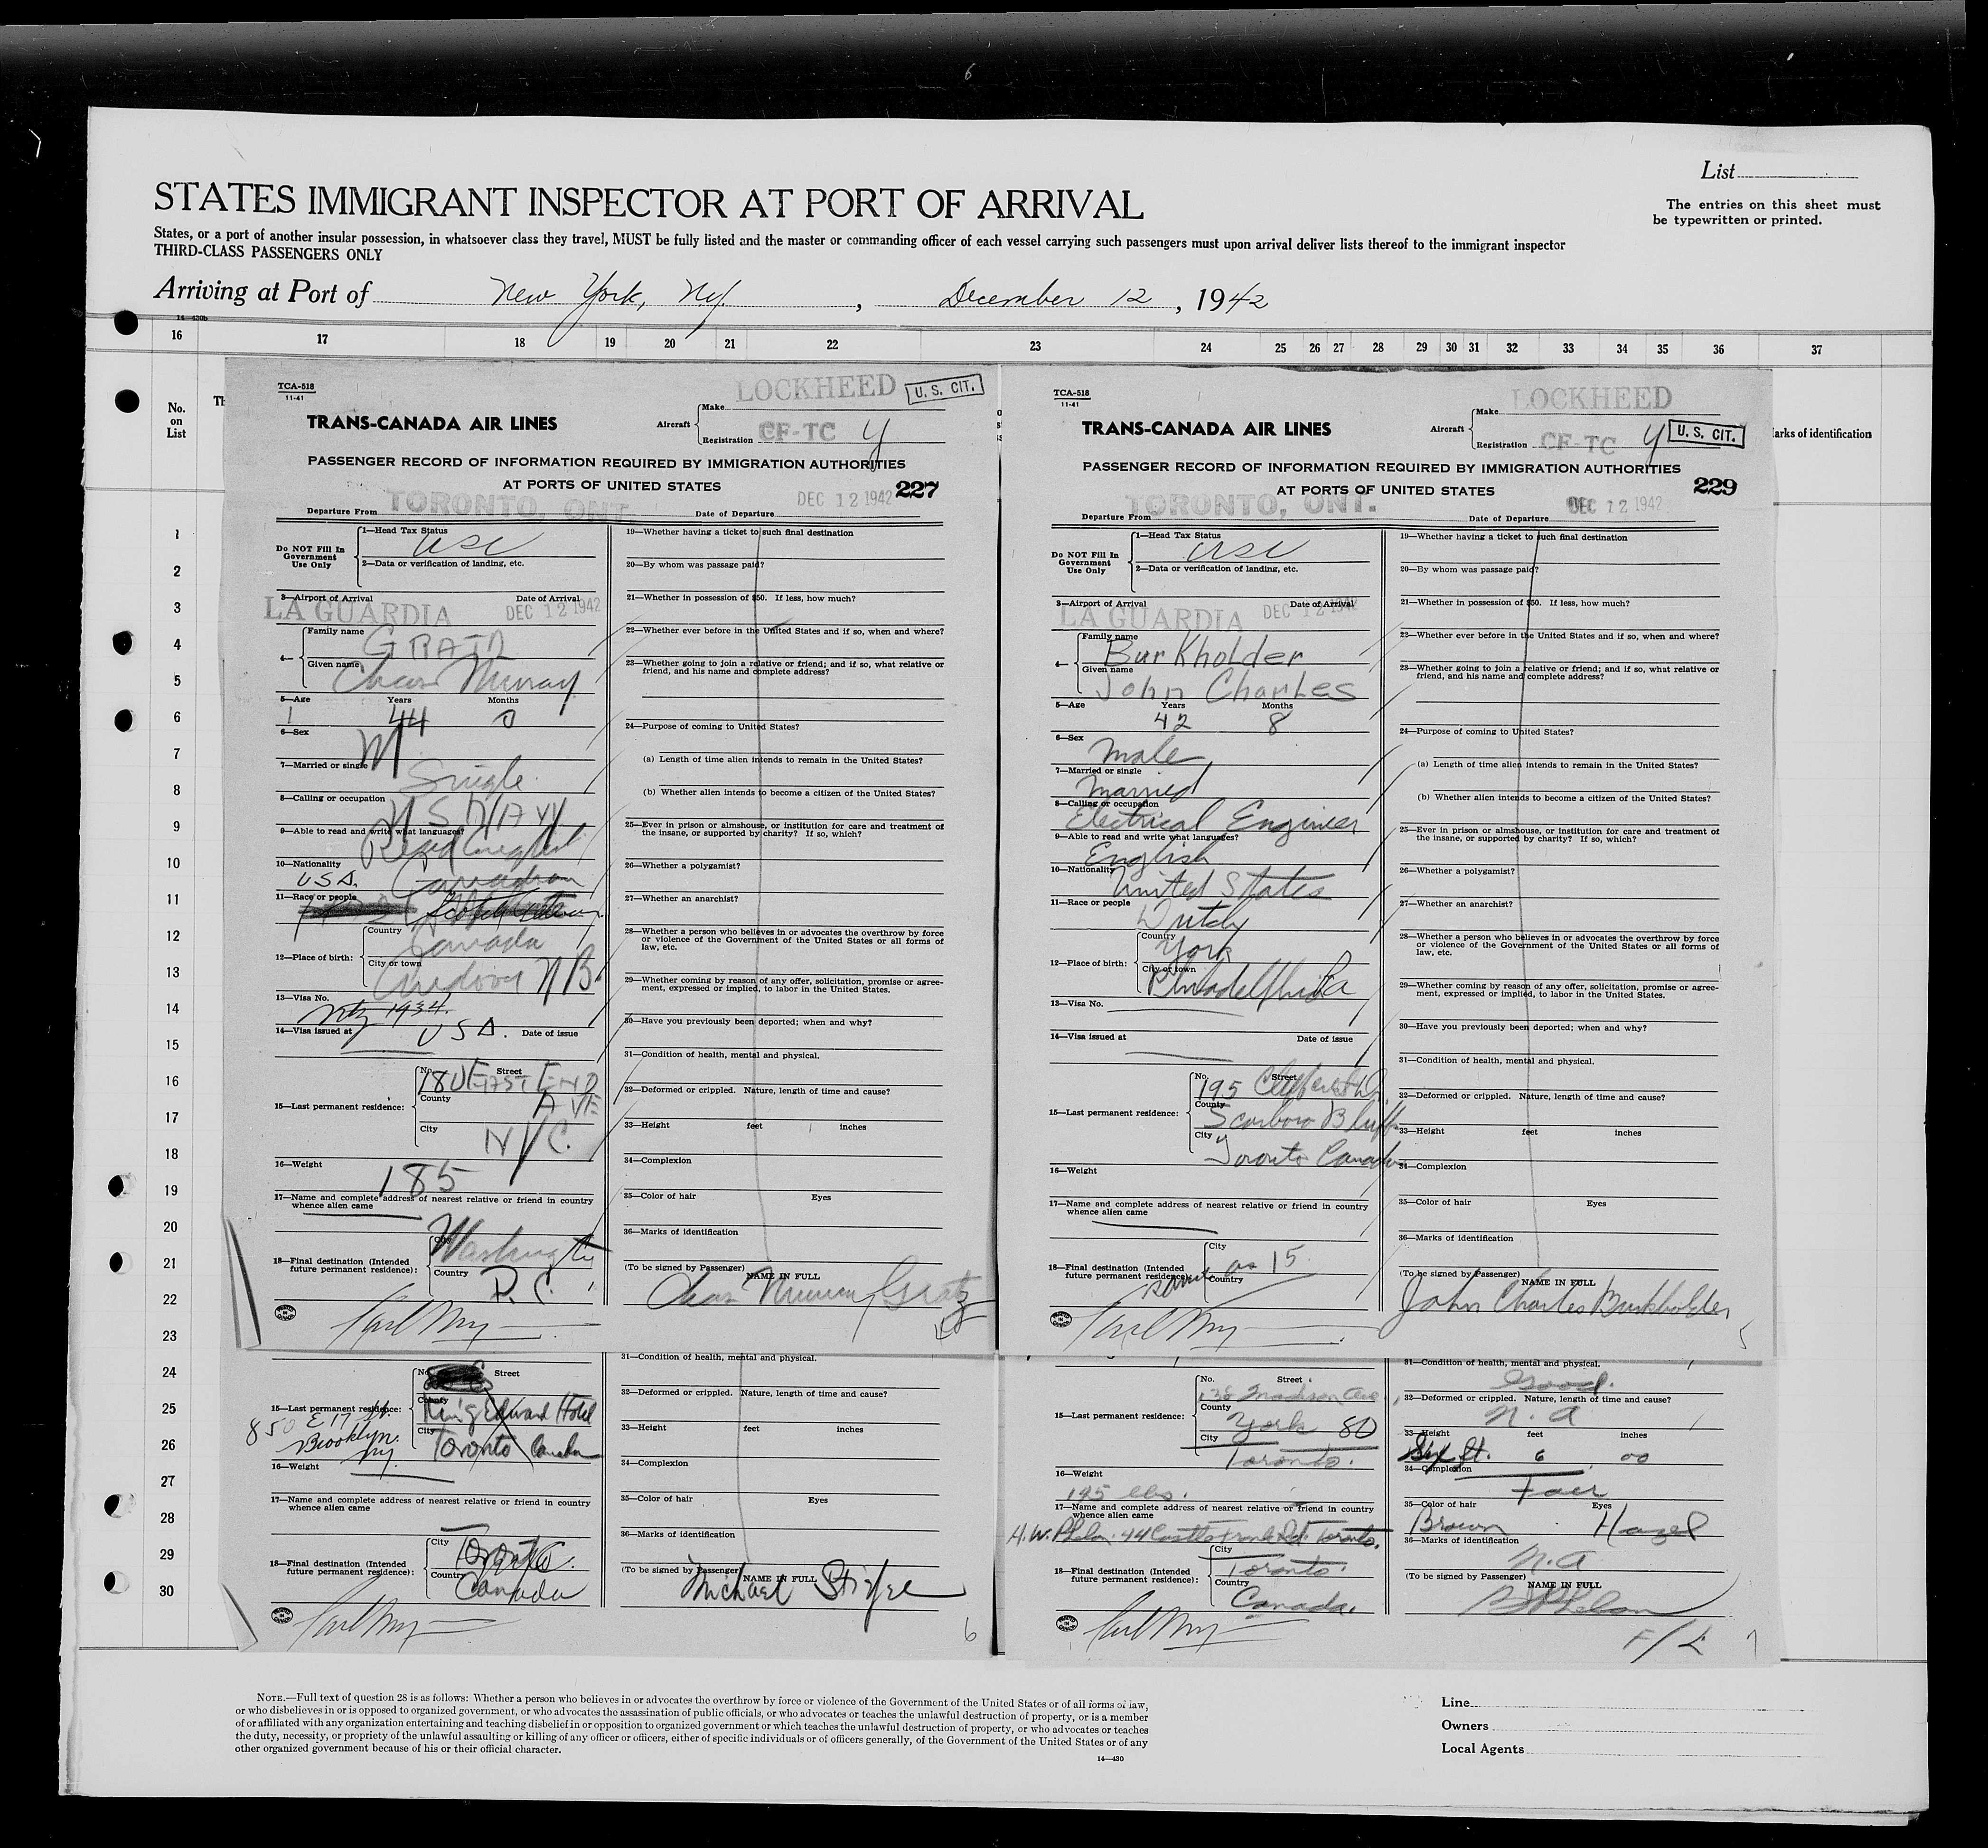 6
List
STATES IMMIGRANT INSPECTOR AT PORT OF ARRIVAL
The entries on this sheet must
be typewritten or printed.
States, or a port of another insular possession, in whatsoever class they travel, MUST be fully listed and the master or commanding officer of each vessel carrying such passengers must upon arrival deliver lists thereof to the immigrant inspector
THIRD-CLASS PASSENGERS ONLY
Arriving at Port of New York, NY. , December 12, 1942
16 17 18 19 20 21 22 23 24 25 26 27 28 29 30 31 32 33 34 35 36 37
No.
on
List
arks of identification
1
2
3
4
5
6
7
8
9
10
11
12
13
14
15
16
17
18
19
20
21
22
23
24
25
26
27
28
29
30
TCA-518
11-41
LOCKHEED
U. S. CIT.
TRANS-CANADA AIR LINES
Aircraft
Make
Registration CF-TC Y
PASSENGER RECORD OF INFORMATION REQUIRED BY IMMIGRATION AUTHORITIES
AT PORTS OF UNITED STATES
DEC 12 1942 227
Departure From TORONTO, ONT. Date of Departure
Do NOT Fill In
Government
Use Only
1—Head Tax Status
USC
2—Data or verification of landing, etc.
3—Airport of Arrival Date of Arrival
LA GUARDIA DEC 12 1942
4—
Family name
Given name
Chas Murray
5—Age Years Months
44 0
6—Sex
M
7—Married or single
Single
8—Calling or occupation
U S NAVY
9—Able to read and write what languages?
10—Nationality
USA. Canadian
11—Race or people
12—Place of birth:
Country
Canada
City or town
Andover NB.
13—Visa No.
1934.
14—Visa issued at USA. Date of issue
15—Last permanent residence:
No. Street
180 EAST END
County
AVE
City
NYC.
16—Weight
185
17—Name and complete address of nearest relative or friend in country
whence alien came
18—Final destination (Intended
future permanent residence):
City
Washington
Country
D. C.
19—Whether having a ticket to such final destination
20—By whom was passage paid?
21—Whether in possession of $50. If less, how much?
22—Whether ever before in the United States and if so, when and where?
23—Whether going to join a relative or friend; and if so, what relative or
friend, and his name and complete address?
24—Purpose of coming to United States?
(a) Length of time alien intends to remain in the United States?
(b) Whether alien intends to become a citizen of the United States?
25—Ever in prison or almshouse, or institution for care and treatment of
the insane, or supported by charity? If so, which?
26—Whether a polygamist?
27—Whether an anarchist?
28—Whether a person who believes in or advocates the overthrow by force
or violence of the Government of the United States or all forms of
law, etc.
29—Whether coming by reason of any offer, solicitation, promise or agree-
ment, expressed or implied, to labor in the United States.
30—Have you previously been deported; when and why?
31—Condition of health, mental and physical.
32—Deformed or crippled. Nature, length of time and cause?
33—Height feet inches
34—Complexion
35—Color of hair Eyes
36—Marks of identification
(To be signed by Passenger) NAME IN FULL
Chas Murray Gratz
TCA-518
11-41
LOCKHEED
TRANS-CANADA AIR LINES
Aircraft
Make
Registration CF-TC Y
U. S. CIT.
PASSENGER RECORD OF INFORMATION REQUIRED BY IMMIGRATION AUTHORITIES
AT PORTS OF UNITED STATES
DEC 12 1942 229
Departure From TORONTO, ONT. Date of Departure
Do NOT Fill In
Government
Use Only
1—Head Tax Status
USC
2—Data or verification of landing, etc.
3—Airport of Arrival Date of Arrival
LA GUARDIA DEC 12 1942
4—
Family name
Burkholder
Given name
John Charles
5—Age Years Months
42 8
6—Sex
Male
7—Married or single
Married
8—Calling or occupation
Electrical Engineer
9—Able to read and write what languages?
English
10—Nationality
United States
11—Race or people
Dutch
12—Place of birth:
Country
York
City or town
Philadelphia Pa
13—Visa No.
14—Visa issued at Date of issue
15—Last permanent residence:
No. Street
195
County
Scarboro Bluffs
City
Toronto Canada
16—Weight
17—Name and complete address of nearest relative or friend in country
whence alien came
18—Final destination (Intended
future permanent residence):
City
same as 15.
Country
19—Whether having a ticket to such final destination
20—By whom was passage paid?
21—Whether in possession of $50. If less, how much?
22—Whether ever before in the United States and if so, when and where?
23—Whether going to join a relative or friend; and if so, what relative or
friend, and his name and complete address?
24—Purpose of coming to United States?
(a) Length of time alien intends to remain in the United States?
(b) Whether alien intends to become a citizen of the United States?
25—Ever in prison or almshouse, or institution for care and treatment of
the insane, or supported by charity? If so, which?
26—Whether a polygamist?
27—Whether an anarchist?
28—Whether a person who believes in or advocates the overthrow by force
or violence of the Government of the United States or all forms of
law, etc.
29—Whether coming by reason of any offer, solicitation, promise or agree-
ment, expressed or implied, to labor in the United States.
30—Have you previously been deported; when and why?
31—Condition of health, mental and physical.
32—Deformed or crippled. Nature, length of time and cause?
33—Height feet inches
34—Complexion
35—Color of hair Eyes
36—Marks of identification
(To be signed by Passenger) NAME IN FULL
John Charles Burkholder
5
No. Street
15—Last permanent residence:
County
King Edward Hotel
850 E 17 St.
Brooklyn.
NY.
City
Toronto Canada
16—Weight
17—Name and complete address of nearest relative or friend in country
whence alien came
18—Final destination (Intended
future permanent residence):
City
Toronto.
Country
Canada
31—Condition of health, mental and physical.
32—Deformed or crippled. Nature, length of time and cause?
33—Height feet inches
34—Complexion
35—Color of hair Eyes
36—Marks of identification
(To be signed by Passenger) NAME IN FULL
Michael
6
No. Street
138 Madison Ave
15—Last permanent residence:
County
York 80
City
Toronto.
16—Weight
195 lbs.
17—Name and complete address of nearest relative or friend in country
whence alien came
H. W. Phelan. 44 Castle Frank Rd. Toronto.
18—Final destination (Intended
future permanent residence):
City
Toronto.
Country
Canada.
31—Condition of health, mental and physical.
Good.
32—Deformed or crippled. Nature, length of time and cause?
N. A
33—Height feet inches
Six ft. 6 00
34—Complexion
Fair
35—Color of hair Eyes
Brown Hazel
36—Marks of identification
N. A
(To be signed by Passenger) NAME IN FULL
Phelan
F/L 7
NOTE.—Full text of question 28 is as follows: Whether a person who believes in or advocates the overthrow by force or violence of the Government of the United States or of all forms of law,
or who disbelieves in or is opposed to organized government, or who advocates the assassination of public officials, or who advocates or teaches the unlawful destruction of property, or is a member
of or affiliated with any organization entertaining and teaching disbelief in or opposition to organized government or which teaches the unlawful destruction of property, or who advocates or teaches
the duty, necessity, or propriety of the unlawful assaulting or killing of any officer or officers, either of specific individuals or of officers generally, of the Government of the United States or of any
other organized government because of his or their official character.
14—430
Line
Owners
Local Agents